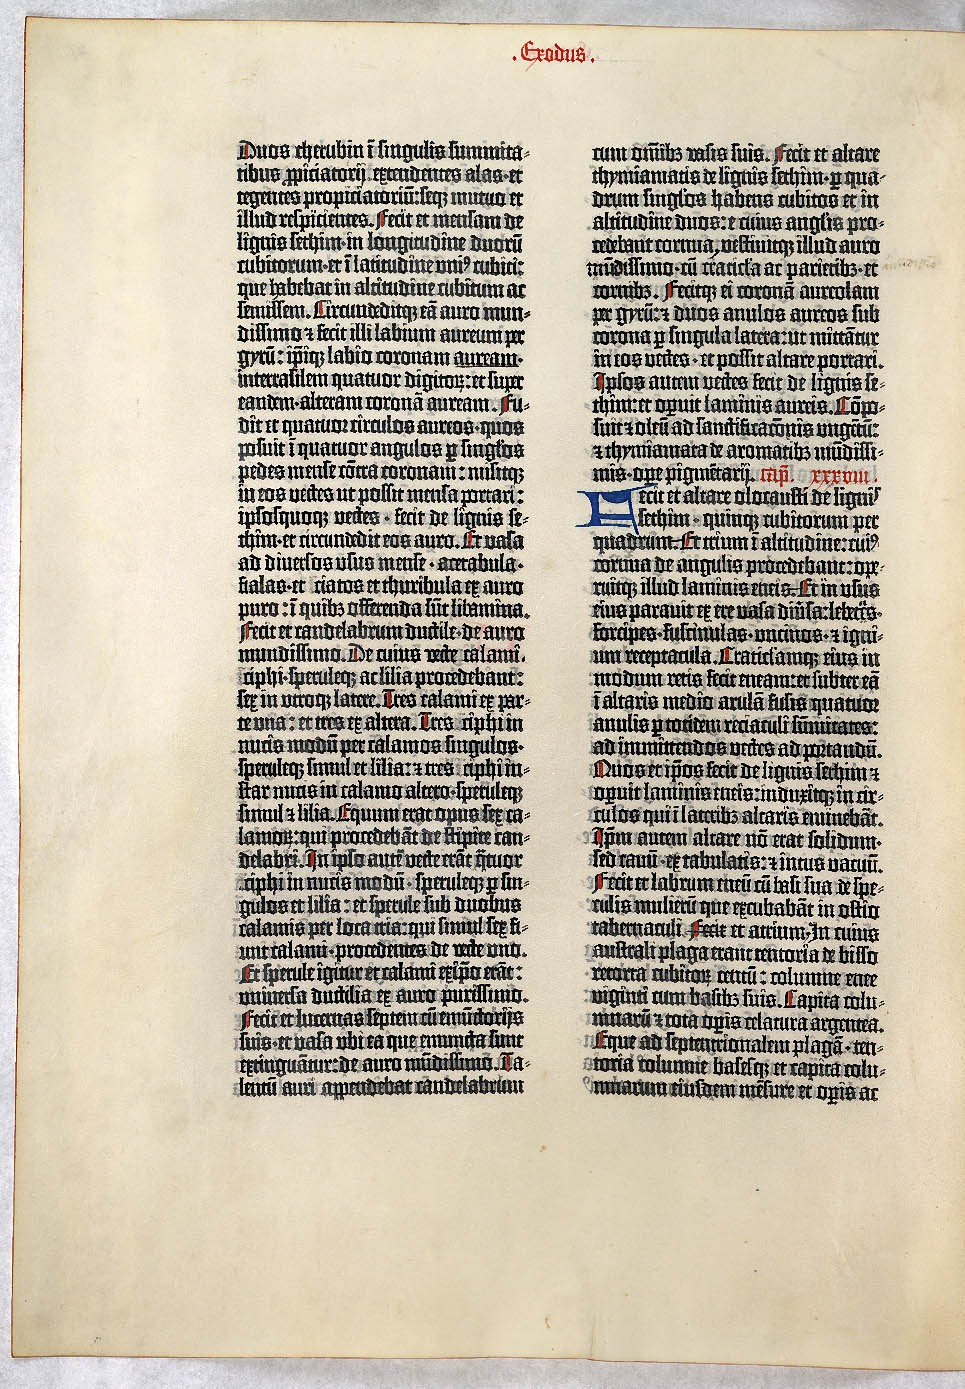 .Exodus.
Duos cherubin ī singulis summita-
tibus ꝓpiciatorij extendentes alas·et
tegentes propiciatoriū:seqꝫ mutuo et
illud respicientes. Fecit et mensam de
lignis sethim·in longitudine duorū
cubitorum·et ī latitudine uniꝰ cubiti:
que habebat in altitudine cubitum ac
semissem. Circundeditqꝫ eā auro mun-
dissimo ⁊ fecit illi labium aureum per
gyrū: ip̄iqꝫ labio coronam auream·
interrasilem quatuor digitoꝝ:et super
eandem·alteram coronā auream. Fu-
dit et quatuor circulos aureos·quos
posuit ī quatuor angulos ꝑ singlos
pedes mense cōtra coronam: misitqꝫ
in eos vectes ut possit mensa portari:
ipsosquoqꝫ vectes·fecit de lignis se-
thim·et circundedit eos auro. Et vasa
ad diversos usus mense·acetabula·
fialas·et ciatos et thuribula ex auro
puro: ī quibꝫ offerenda sūt libamina.
Fecit et candelabrum ductile·de auro
mundissimo. De cuius vecte calami·
ciphi·speruleqꝫ ac lilia procedebant:
sex in utroqꝫ latere. Tres calami ex par-
te una: et tres ex altera. Tres ciphi in
nucis modū per calamos singulos·
speruleqꝫ simul et lilia: ⁊ tres ciphi in-
star nucis in calamo altero·speruleqꝫ
simul ⁊ lilia. Equum erat opus sex ca-
lamoꝝ: qui procedebāt de stipite can-
delabri. In ipso autē vecte erāt q̄tuor
ciphi in nucis modū·speruleqꝫ ꝑ sin-
gulos et lilia: et sperule sub duobus
calamis per loca tria: qui simul sex fi-
unt calami·procedentes de vecte uno.
Et sperule igitur et calami ex ip̄o erāt:
universa ductilia ex auro purissimo.
Fecit et lucernas septem cū emūctorijs
suis·et vasa ubi ea que emuncta sunt
extinguātur: de auro mūdissimo. Ta-
lentū auri appendebat candelabrum
cum om̄ibꝫ vasis suis. Fecit et altare
thymiamatis de lignis sethim·ꝑ qua-
drum singlos habens cubitos et in
altitudine duos: e cuius anglis pro-
cedebant cornua, vestivitqꝫ illud auro
mūdissimo·cū craticla ac parietibꝫ·et
cornibꝫ. Fecitqꝫ ei coronā aureolam
per gyrū: ⁊ duos anulos aureos sub
corona ꝑ singula latera: ut mittātur
in eos vectes·et possit altare portari.
Ipsos autem vectes fecit de lignis se-
thim: et oꝑuit laminis aureis. Cōpo-
suit ⁊ oleū ad sanctificacōnis ungētū:
⁊ thymiamata de aromatibꝫ mūdissi-
mis·oꝑe pigmētarij. Cap̄. xxxviii.
Fecit et altare olocausti de lignis
sethim·quinqꝫ cubitorum per
quadrum. Et trium ī altitudine: cuiꝰ
cornua de angulis procedebant: oꝑe-
ruitqꝫ illud laminis eneis. Et in usus
eius paravit ex ere vasa diūsa: lebetes·
forcipes·fuscinulas·uncinos·⁊ igni-
um receptacula. Craticlamqꝫ eius in
modum retis fecit eneam: et subter eā
ī altaris medio arulā fusis quatuor
anulis ꝑ totidem reciaculi sūmitates:
ad immittendos vectes ad portandū.
Quos et ip̄os fecit de lignis sethim ⁊
oꝑuit laminis eneis: induxitqꝫ in cir-
culos qui ī lateribꝫ altaris eminebāt.
Ip̄m autem altare nō erat solidum·
sed cavū·ex tabulatis: ⁊ intus vacuū.
Fecit et labrum eneū cū basi sua de spe-
culis mulierū que excubabāt in ostio
tabernaculi. Fecit et atrium, In cuius
australi plaga erant tentoria de bisso
retorta cubitoꝝ centū: columne enee
viginti cum basibꝫ suis. Capita colu-
mnarū ⁊ tota oꝑis celatura argentea.
Eque ad septentrionalem plagā·ten-
toria columne basesqꝫ et capita colu-
mnarum eiusdem mēsure et oꝑis ac